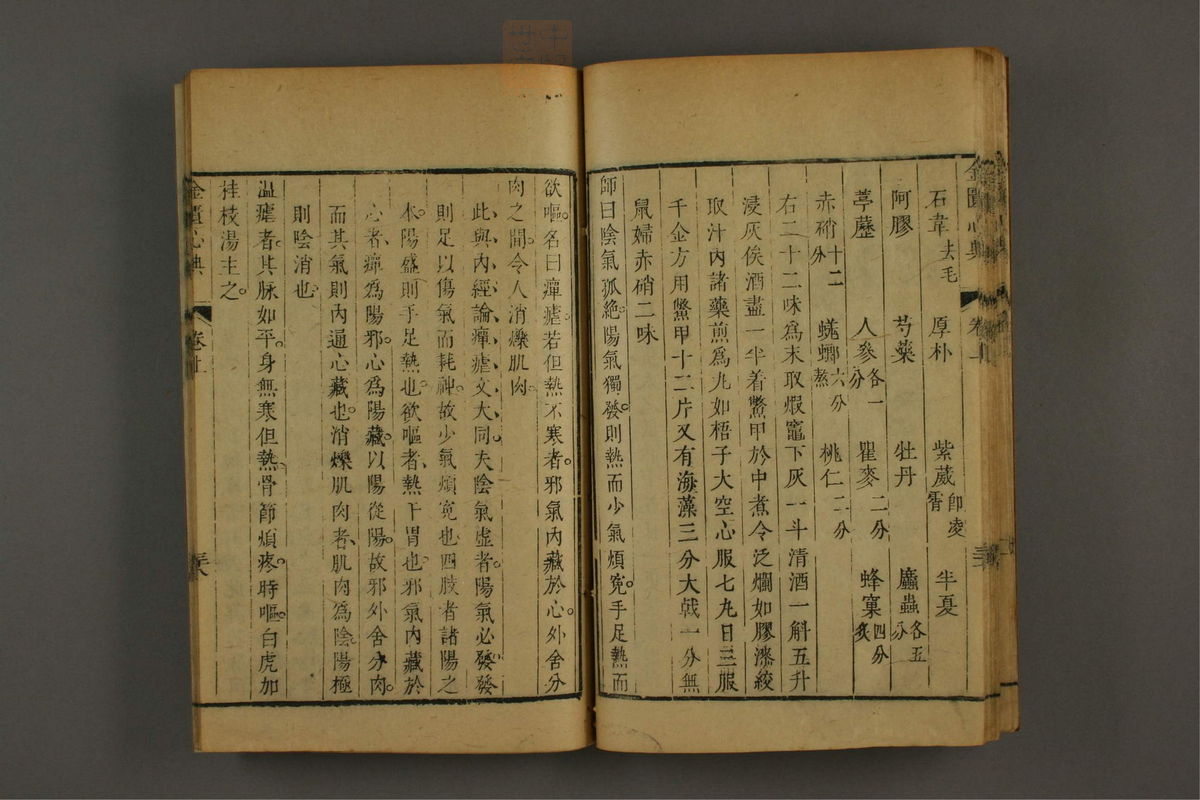 石韋去毛 厚朴 紫葳即凌霄 半夏
阿膠 芍藥 牡丹 䗪蟲各五分
葶藶 人參各一分 瞿麥二分 蜂窠四分炙
赤硝十二分 蜣螂六分熬 桃仁二分
右二十二味為末取煆竈下灰一斗清酒一斛五升
浸灰俟酒盡一半着鱉甲於中煮令泛爛如膠漆絞
取汁內諸藥煎為丸如梧子大空心服七丸日三服
千金方用鱉甲十二片又有海藻三分大戟一分無
鼠婦赤硝二味
師曰陰氣孤絕陽氣獨發則熱而少氣煩寃手足熱而
欲嘔名曰癉瘧若但熱不寒者邪氣內藏於心外舍分
肉之間令人消爍肌肉
此與內經論癉瘧文大同夫陰氣虛者陽氣必發發
則足以傷氣而耗神故少氣煩寃也四肢者諸陽之
本陽盛則手足熱也欲嘔者熱干胃也邪氣內藏於
心者癉為陽邪心為陽藏以陽從陽故邪外舍分肉
而其氣則內通心藏也消爍肌肉者肌肉為陰陽極
則陰消也
温瘧者其脉如平身無寒但熱骨節煩疼時嘔白虎加
桂枝湯主之
金匱心典
卷上